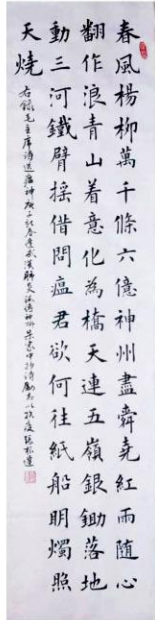 春風楊柳萬千條六億神州盡舜堯紅雨隨心
翻作浪青山着意化為橋天連五嶺銀鋤落地
動三河鐵臂搖借問瘟君欲何往紙船明燭照
天燒
右錄毛主席诗送瘟神庚子春逢武漢肺炎